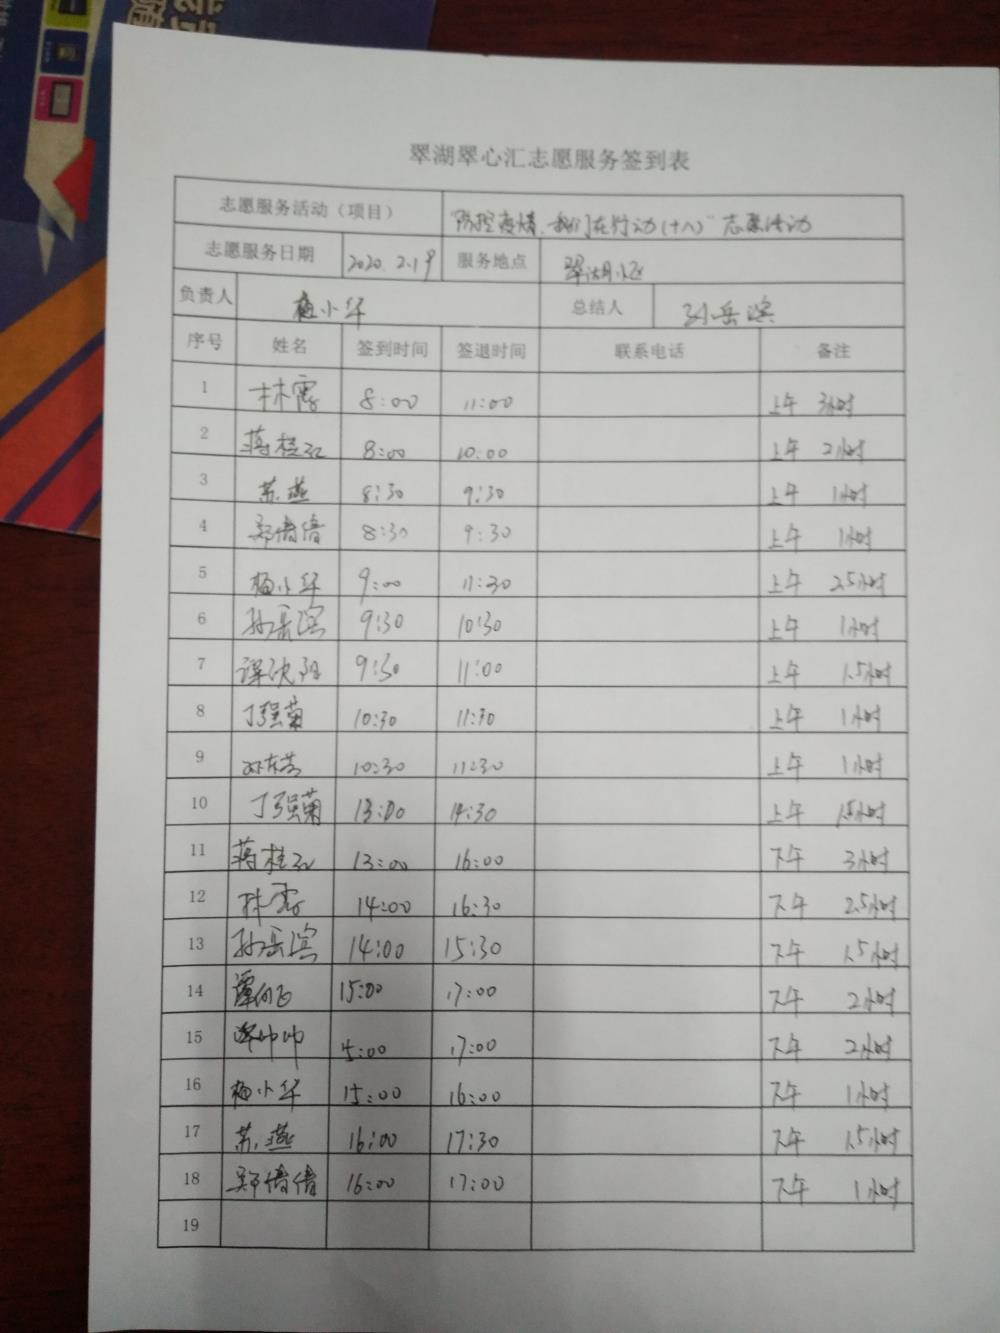 翠湖翠心汇志愿服务签到表
志愿服务活动（项目） "防控疫情，我们在行动(十八)"志愿活动
志愿服务日期 2020.2.19 服务地点 翠湖小区
负责人 梅小华 总结人 孙岳滨
序号 姓名 签到时间 签退时间 联系电话 备注
1 林霞 8:00 11:00 上午 3小时
2 蒋桂红 8:00 10:00 上午 2小时
3 苏燕 8:30 9:30 上午 1小时
4 郑倩倩 8:30 9:30 上午 1小时
5 梅小华 9:00 11:30 上午 2.5小时
6 孙岳滨 9:30 10:30 上午 1小时
7 谭沈阳 9:30 11:00 上午 1.5小时
8 丁强菊 10:30 11:30 上午 1小时
9 10:30 11:30 上午 1小时
10 丁强菊 13:00 14:30 上午 1.5小时
11 蒋桂红 13:00 16:00 下午 3小时
12 林霞 14:00 16:30 下午 2.5小时
13 孙岳滨 14:00 15:30 下午 1.5小时
14 15:00 17:00 下午 2小时
15 15:00 17:00 下午 2小时
16 梅小华 15:00 16:00 下午 1小时
17 苏燕 16:00 17:30 下午 1.5小时
18 郑倩倩 16:00 17:00 下午 1小时
19